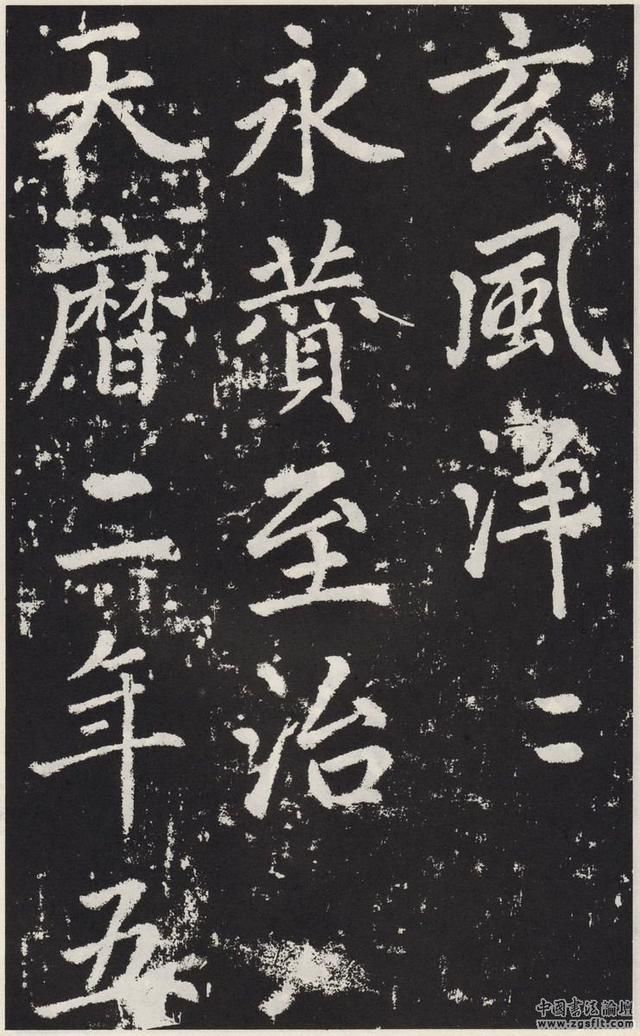 玄風洋〻
永賛至治
天曆二年五
中国书法论坛
www.zgsflt.com